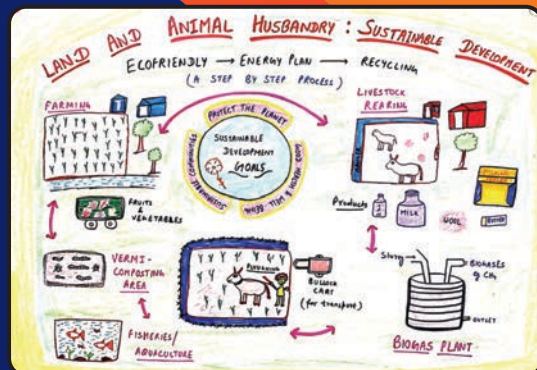 LAND AND ANIMAL HUSBANDRY: SUSTAINABLE DEVELOPMENT
ECOFRIENDLY → ENERGY PLAN → RECYCLING
(A STEP BY STEP PROCESS)
FARMING
LIVESTOCK
REARING
PROTECT THE PLANET
SUSTAINABLE COMMUNITIES
GOOD HEALTH & WELL BEING
SUSTAINABLE
DEVELOPMENT
GOALS
FRUITS
&
VEGETABLES
Products
MILK
WOOL
BUTTER
VERMI-
COMPOSTING
AREA
PLOUGHING
BULLOCK
CART
(for transport)
Slurry
BIOGASES
CH4
OUTLET
FISHERIES/
AQUACULTURE
BIOGAS PLANT